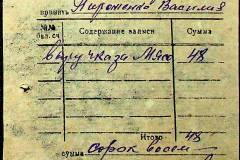 принять Пироженко Василия
№№ бал. сч Содержание записи Сумма
выручка за Мясо 48
Итого 48
сумма Сорок восем